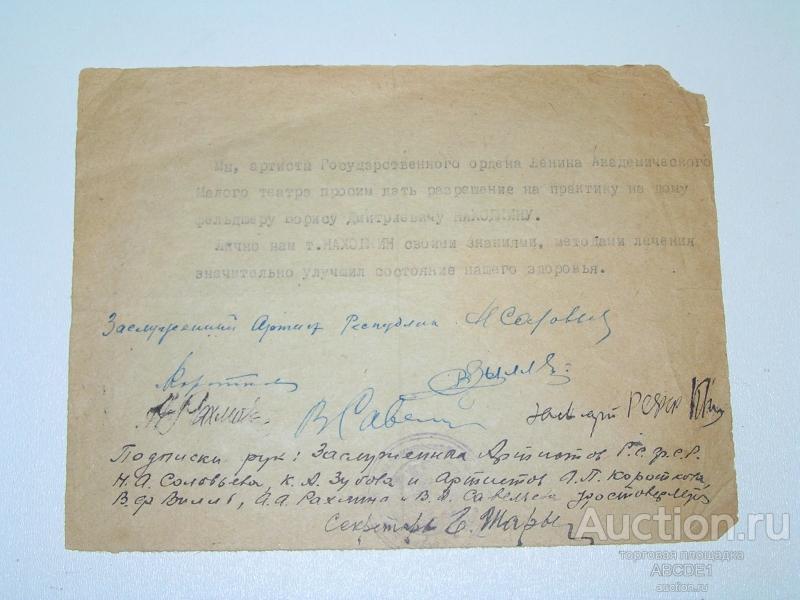 Мы, артисты Государственного ордена Ленина Академического
Малого театра просим дать разрешение на практику на дому
фельдшеру Борису Дмитриевичу НАХОДКИНУ.
Лично нам т.НАХОДКИН своими знаниями, методами лечения
значительно улучшил состояние нашего здоровья.
Заслуженный Артист Республики
В Савель
засл арт РСФСР
Подписи рук: Заслуженных Артистов Р.С.Ф.С.Р.
Н.А. Соловьева, К.А. Зубова и Артистов А.П. Короткова,
В.Ф Вилль, А.А. Рахмина и В.И. Савельева удостоверяю
Секретарь
Auction.ru
торговая площадка
ABCDE1
auction.ru